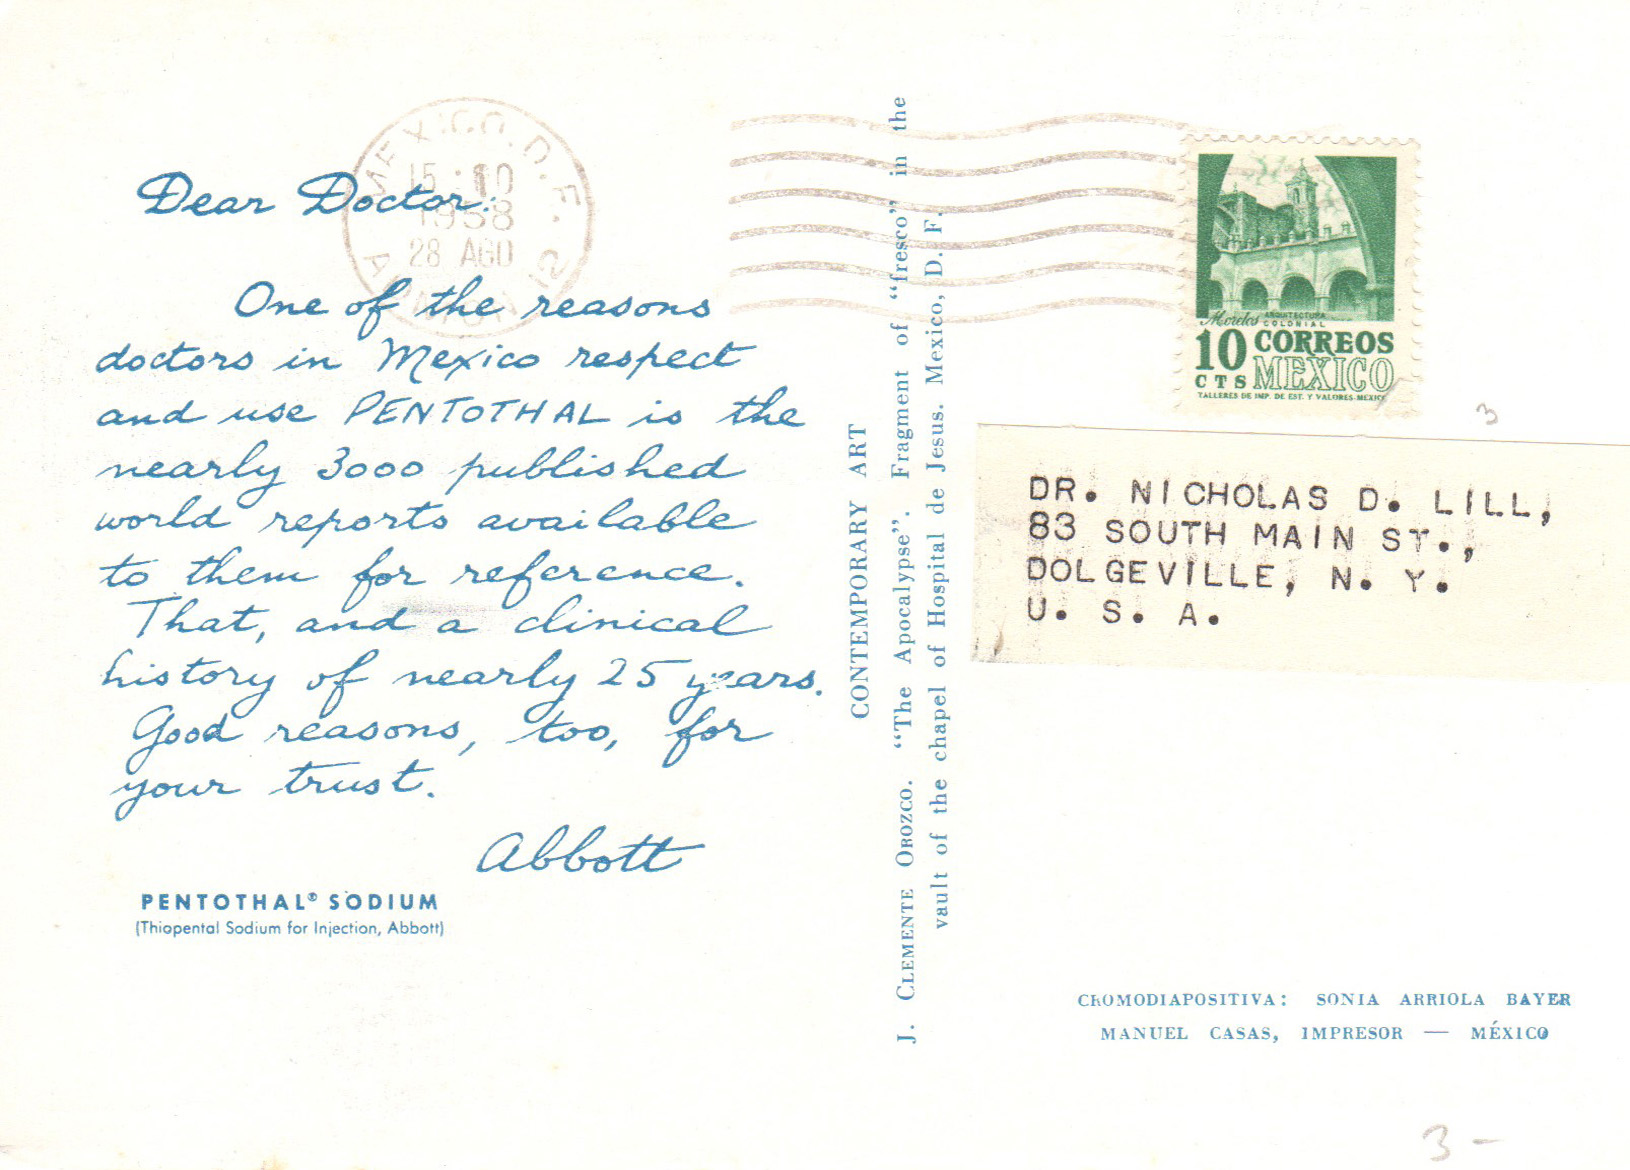 MEXICO. D. F.
15:10
1958
28 AGO
Dear Doctor:
One of the reasons
doctors in Mexico respect
and use PENTOTHAL is the
nearly 3000 published
world reports available
to them for reference.
That, and a clinical
history of nearly 25 years.
Good reasons, too, for
your trust.
Abbott
PENTOTHAL® SODIUM
(Thiopental Sodium for Injection, Abbott)
CONTEMPORARY ART
J. CLEMENTE OROZCO. "The Apocalypse". Fragment of "fresco" in the
vault of the chapel of Hospital de Jesus. Mexico, D. F.
Morelos ARQUITECTURA
COLONIAL
10 CORREOS
CTS MEXICO
TALLERES DE IMP. DE EST. Y VALORES-MEXICO
3
DR. NICHOLAS D. LILL,
83 SOUTH MAIN ST.,
DOLGEVILLE, N. Y.
U. S. A.
CROMODIAPOSITIVA: SONIA ARRIOLA BAYER
MANUEL CASAS, IMPRESOR — MÉXICO
3 –